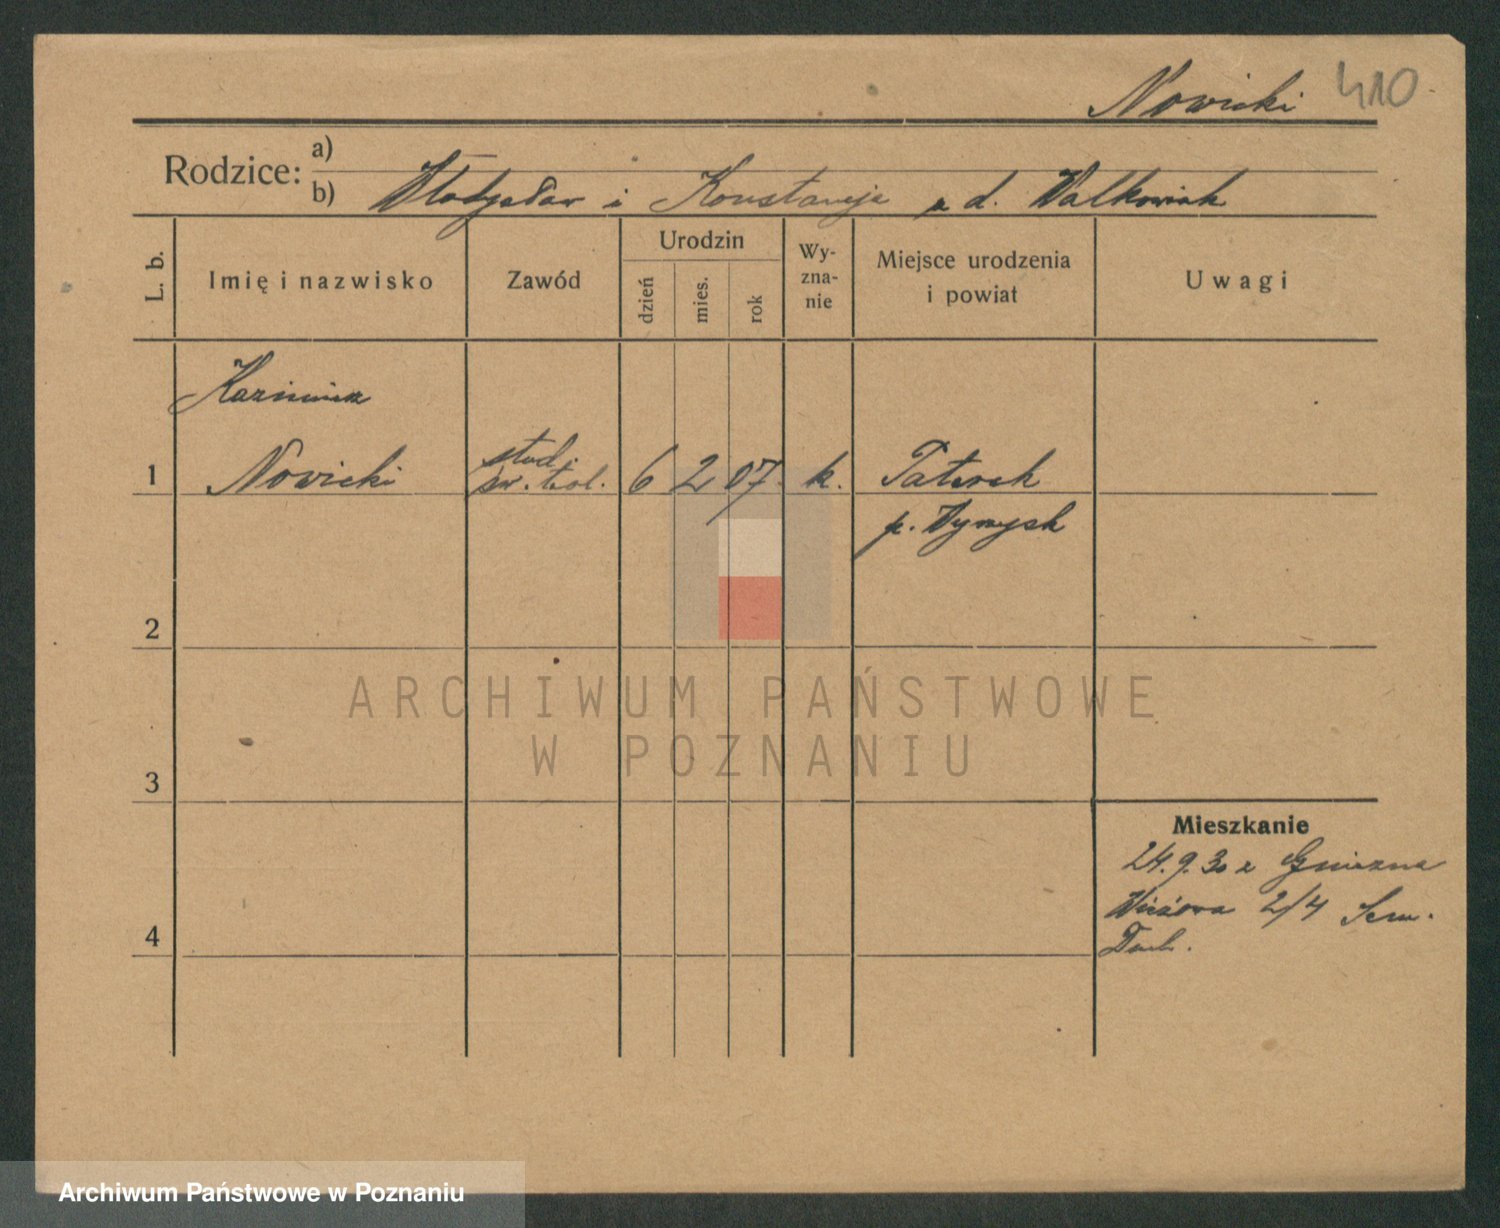 Nowicki 410
Rodzice: a)
b) Władysław i Konstancja z d. Walkowiak
L. b.
Imię i nazwisko
Zawód
Urodzin
dzień
mies.
rok
Wy-
zna-
nie
Miejsce urodzenia
i powiat
Uwagi
Kazimierz
1 Nowicki
stud.
św. teol.
6 2 07 k.
p. Wyrzysk
2
3
4
Mieszkanie
24.9.30 z Gniezna
Wieżowa 2/4 Sem.
Duch.
ARCHIWUM PAŃSTWOWE
W POZNANIU
Archiwum Państwowe w Poznaniu